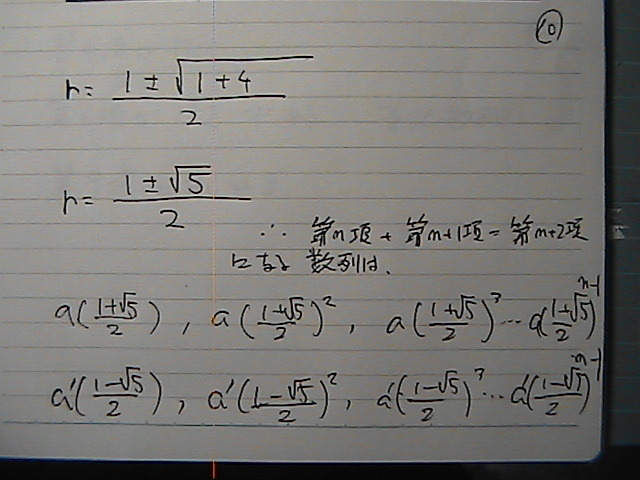 ⑩
r = (1 ± √(1+4)) / 2
r = (1 ± √5) / 2
∴ 第n項 + 第n+1項 = 第n+2項
になる 数列は、
a((1+√5)/2), a((1+√5)/2)², a((1+√5)/2)³ … a((1+√5)/2)ⁿ⁻¹
a'((1-√5)/2), a'((1-√5)/2)², a'((1-√5)/2)³ … a'((1-√5)/2)ⁿ⁻¹